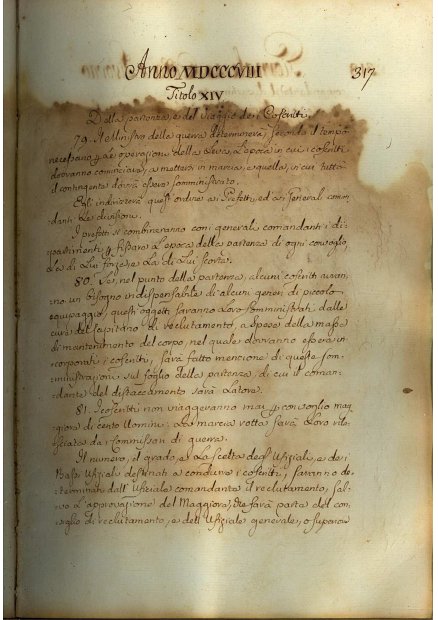 Anno MDCCCVIII 317
Titolo XIV
Della partenza, e del viaggio dei Coscritti
79. Il Ministro della guerra determinerà, secondo il tempo
necessario p le operazioni della Leva, l'epoca in cui i coscritti
dovranno cominciare, a mettersi in marcia, e quella, in cui tutto
il contingente dovrà essere somministrato.
Egli indirizerà quest'ordine ai Prefetti, ed ai Generali coman-
danti le divisioni.
I prefetti si combineranno coni generali comandanti i di-
partimenti p fissare l'epoca della partenza di ogni convoglio,
la di Lui forza, e la di Lui scorta.
80. Se, nel punto della partenza, alcuni coscritti avran-
no un bisogno indispensabile di alcuni generi di piccolo
equipaggio, questi oggetti saranno loro somministrati dalle
cure del Capitano di reclutamento, a spese della massa
di mantenimento del corpo, nel quale dovranno essere in-
corporati i coscritti, sarà fatto menzione di queste som-
ministrazioni sul foglio della partenza, di cui il coman-
dante del distaccamento sarà latore.
81. I coscritti non viaggeranno mai p convoglio mag-
giore di cento Uomini: La marcia rotta sarà loro rila-
sciata da i Commissari di guerra.
Il numero, il grado, e la scelta degl'Ufiziali, e dei
Bassi Ufiziali destinati a condurre i coscritti, saranno de-
terminati dall'Ufiziale comandante il reclutamento, sal-
vo l'approvazione del Maggiore, che farà parte del con-
siglio di reclutamento, e dell'Ufiziale generale, o superiore